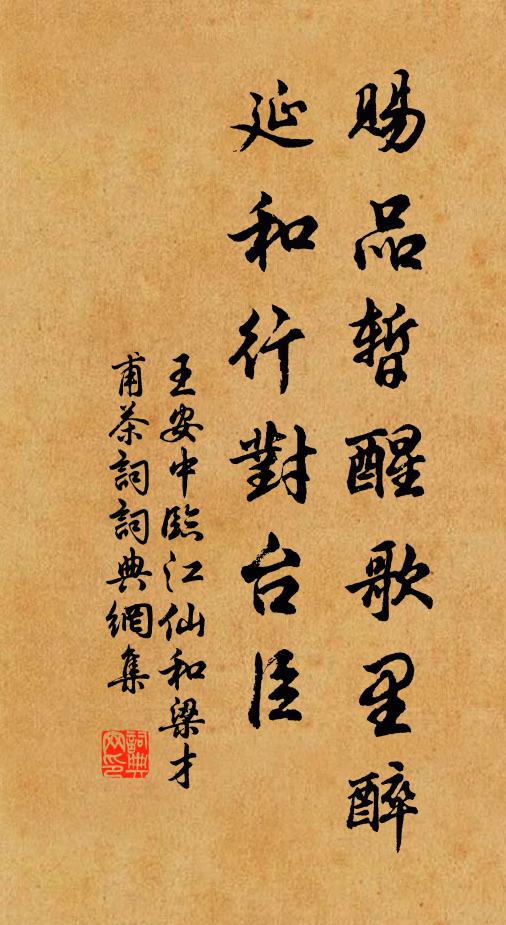 賜品暫醒歌里醉
延和行對台臣
王安中臨江仙和梁才
甫茶詞詞典網集
詞典
网印